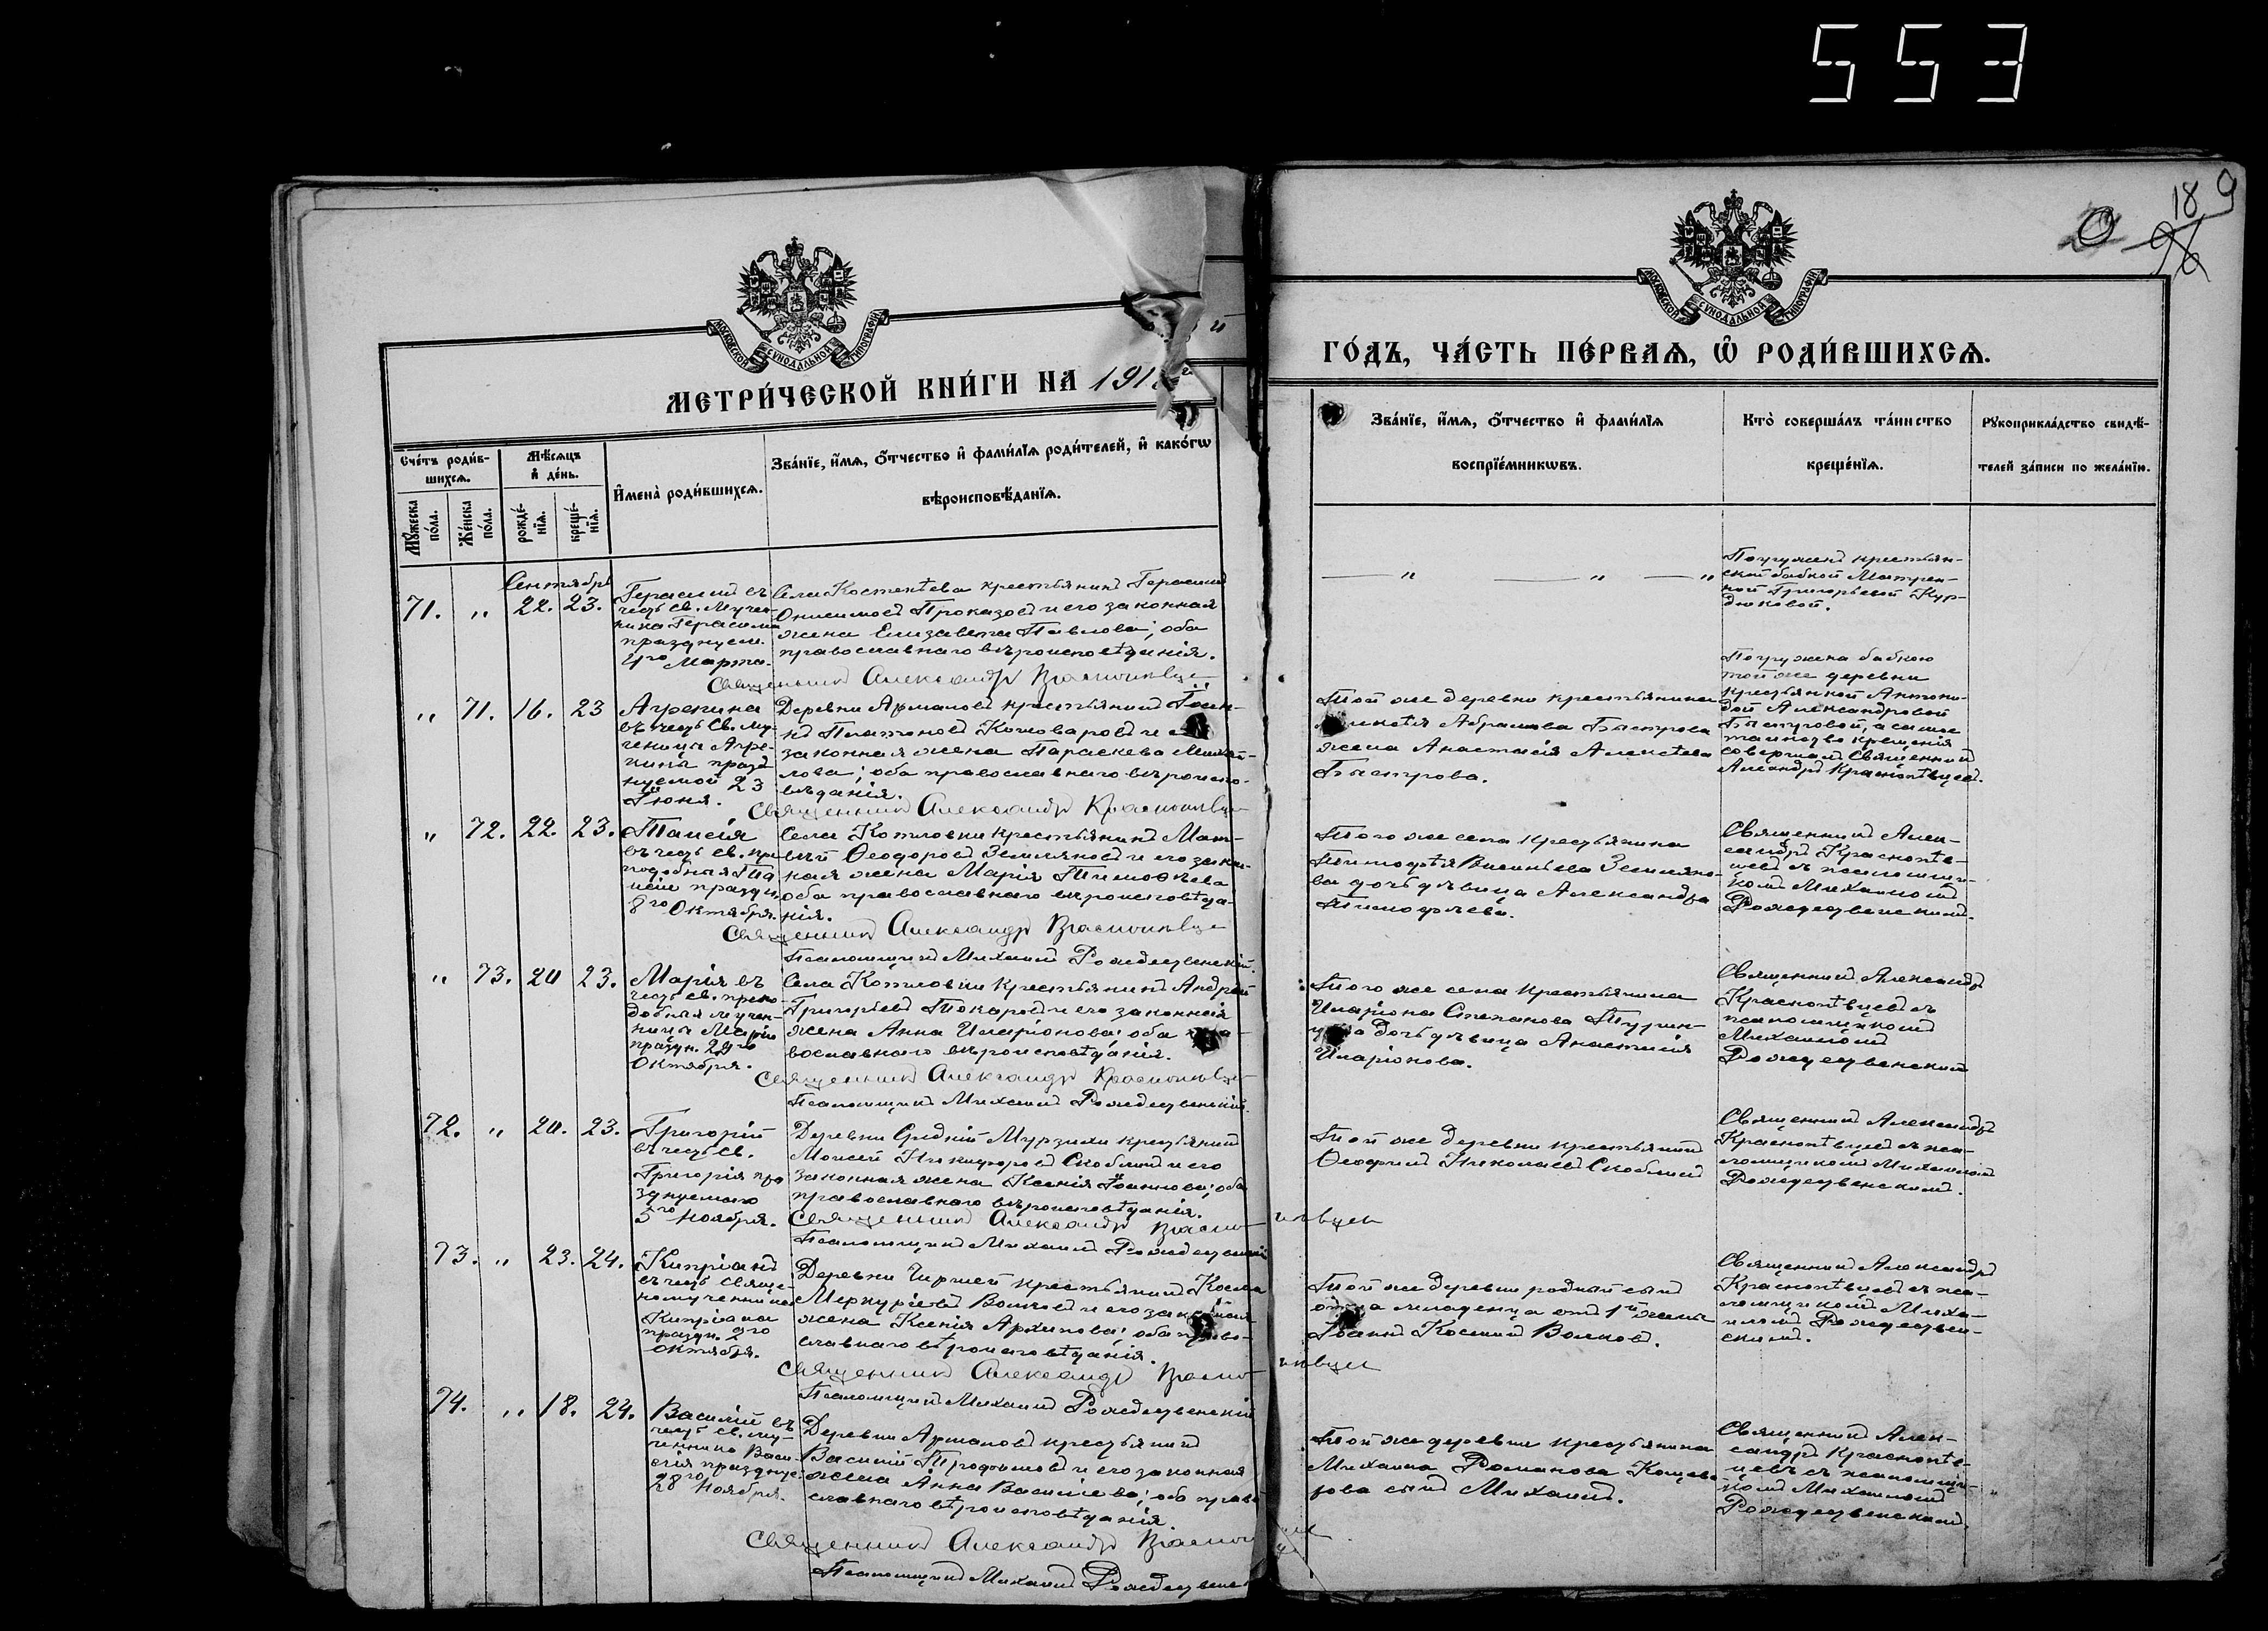 553
18 9
МОСКОВСКОЙ СΥНОДАЛЬНОЙ ТИПОГРАФІИ
МОСКОВСКОЙ СΥНОДАЛЬНОЙ ТИПОГРАФІИ
МЕТРИ́ЧЕСКОЙ КНИ́ГИ НА 191
ГО́ДЪ, ЧА́СТЬ ПЕ́РВАѦ, Ѡ҆ РОДИ́ВШИХСѦ.
Сче́тъ роди́в-
шихсѧ.
Мꙋ́жеска по́ла.
Же́нска по́ла.
Мѣ́сѧцъ и҆ де́нь.
рожде́-нїѧ.
креще́-нїѧ.
И҆мена̀ роди́вшихсѧ.
Зва́нїе, и҆́мѧ, ѻ҆́тчество и҆ фами́лїѧ роди́телей, и҆ како́гѡ
вѣроисповѣ́данїѧ.
Зва́нїе, и҆́мѧ, ѻ҆́тчество и҆ фами́лїѧ
воспрїе́мникѡвъ.
Кто̀ соверша́лъ та́инство
креще́нїѧ.
Рꙋкоприкла́дство свидѣ́-
телей за́писи по жела́нїю.
Сентябрь
71. „ 22. 23.
Герасимъ въ
честь св. Мучен-
ника Герасима
празднуем.
4го Марта.
Села Костенѣева крестьянинъ Герасимъ
Онисимовъ Проказовъ и его законная
жена Елизавета Павлова; оба
православнаго вѣроисповѣданія.
Священникъ Александръ Краснопѣвцевъ
— „ — „ — „
Погруженъ крестьян-
ской бабкой Матрен-
ной Григорьевой Кур-
дюковой.
„ 71. 16. 23
Агрипина
въ честь Св. му-
ченицы Агри-
пины празд
нуемой 23
Іюня.
Деревни Армаловъ крестьянинъ Іоан-
нъ Платоновъ Кашоваровъ и его
законная жена Параскева Михай-
лова; оба православнаго вѣроиспо-
вѣданія.
Священникъ Александръ Краснопѣвцевъ
Той же деревни крестьянина
Алексѣя Абрамова Быстрова
жена Анастасія Алексѣева
Быстрова.
Погружена бабкою
той же деревни
крестьянкой Антони-
дой Александровой
Быстровой, а самое
таинство крещенія
совершалъ Священникъ
Александръ Краснопѣвцевъ.
„ 72. 22. 23.
Таисія
въ честь св. пре
подобныя Та
исіи праздн.
8го Октября.
Села Котловки крестьянинъ Мат-
вѣй Ѳеодоровъ Земляновъ и его закон-
ная жена Марія Тимоѳѣева
оба православнаго вѣроисповѣда-
нія.
Священникъ Александръ Краснопѣвцевъ
Псаломщикъ Михаилъ Рождественскій.
Того же села крестьянина
Тимофѣя Васильева Земляно-
ва дочь дѣвица Александра
Тимофѣева.
Священникъ Алек-
сандръ Краснопѣв-
цевъ съ псаломщи-
комъ Михаиломъ
Рождественскимъ.
„ 73. 20 23.
Марія въ
честь св. препо-
добныя мучен-
ницы Маріи
праздн. 29го
Октября.
Села Котловки крестьянинъ Андрей
Григорьевъ Токаровъ и его законная
жена Анна Иларіонова; оба пра-
вославнаго вѣроисповѣданія.
Священникъ Александръ Краснопѣвцевъ
Псаломщикъ Михаилъ Рождественскій.
Того же села крестьянина
Иларіона Степанова
дочь дѣвица Анастасія
Иларіонова.
Священникъ Александръ
Краснопѣвцевъ съ
псаломщикомъ
Михаиломъ
Рождественскимъ
72. „ 20. 23.
Григорій
въ честь св.
Григорія пра
зднуемаго
5го Ноября.
Деревни Средній Мурзихи крестьянинъ
Моисей Никифоровъ Скоблинъ и его
законная жена Ксенія Іоаннова; оба
православнаго вѣроисповѣданія.
Священникъ Александръ Краснопѣвцевъ
Псаломщикъ Михаилъ Рождественскій
Той же деревни крестьянинъ
Ѳеофилъ Николаевъ Скоблинъ
Священникъ Александръ
Краснопѣвцевъ съ пса-
ломщикомъ Михаиломъ
Рождественскимъ.
73. „ 23. 24.
Кипріанъ
въ честь Священ-
номученника
Кипріана
праздн. 2го
октября.
Деревни Чиршей крестьянинъ Косма
Меркуріевъ Волковъ и его законная
жена Ксенія Архипова; оба право-
славнаго вѣроисповѣданія.
Священникъ Александръ Краснопѣвцевъ
Псаломщикъ Михаилъ Рождественскій
Той же деревни родный сынъ
отца младенца отъ 1ой жены
Іоаннъ Космин Волковъ.
Священникъ Александръ
Краснопѣвцевъ съ пса-
ломщикомъ Миха-
иломъ Рождествен-
скимъ.
74. „ 18. 24.
Василій въ
честь св. му-
ченника Васи-
лія праздную.
28го Ноября.
Деревни Армаловъ крестьянинъ
Василій Трофимовъ и его законная
жена Анна Васильева; оба право
славнаго вѣроисповѣданія
Священникъ Александръ Краснопѣвцевъ
Псаломщикъ Михаилъ Рождественс
Той же деревни крестьянина
Михаила Романова Кашева-
рова сынъ Михаилъ.
Священникъ Алек-
сандръ Краснопѣв-
цевъ съ псаломщи-
комъ Михаиломъ
Рождественскимъ.